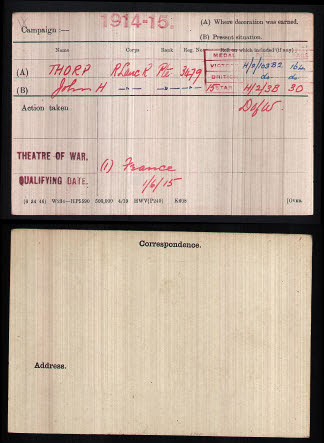 1914-15.
Campaign :—
(A) Where decoration was earned.
(B) Present situation.
Name Corps Rank Reg. No. Roll on which included (if any)
MEDAL
(A) THORP R Lanc R Pte 3479 VICTORY H/2/103B2
(B) John H —"— —"— BRITISH do do
15 STAR H/2/3B 30
Action taken
DofW.
THEATRE OF WAR.
(1) France
QUALIFYING DATE.
1/6/15
500,000 4/19 HWV(P240) K608 [OVER.
Correspondence.
Address.